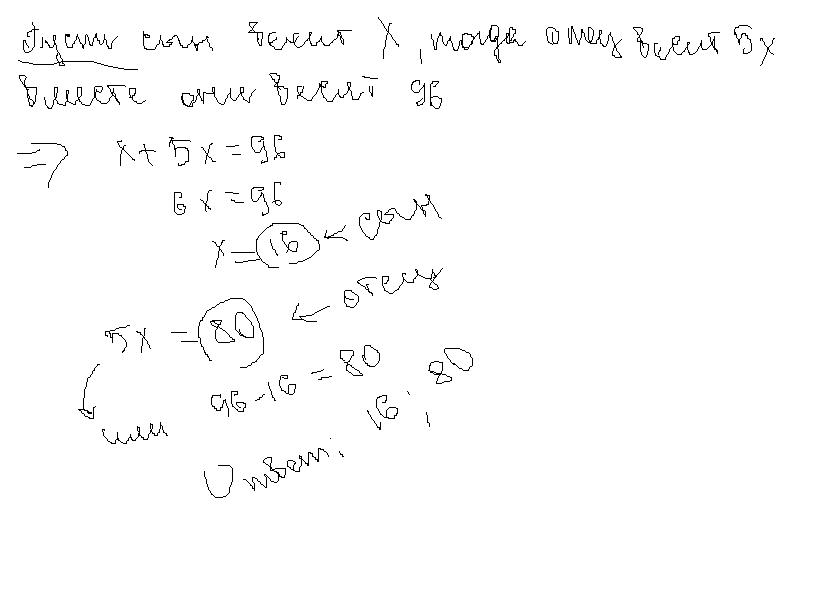 Пусть сын весит x, тогда отец весит 5x
Вместе они весят 96
=> x + 5x = 96
6x = 96
x = 16 ← сын
5x = 80 ← отец
или 96 - 16 = 80
Ответ: 16; 80